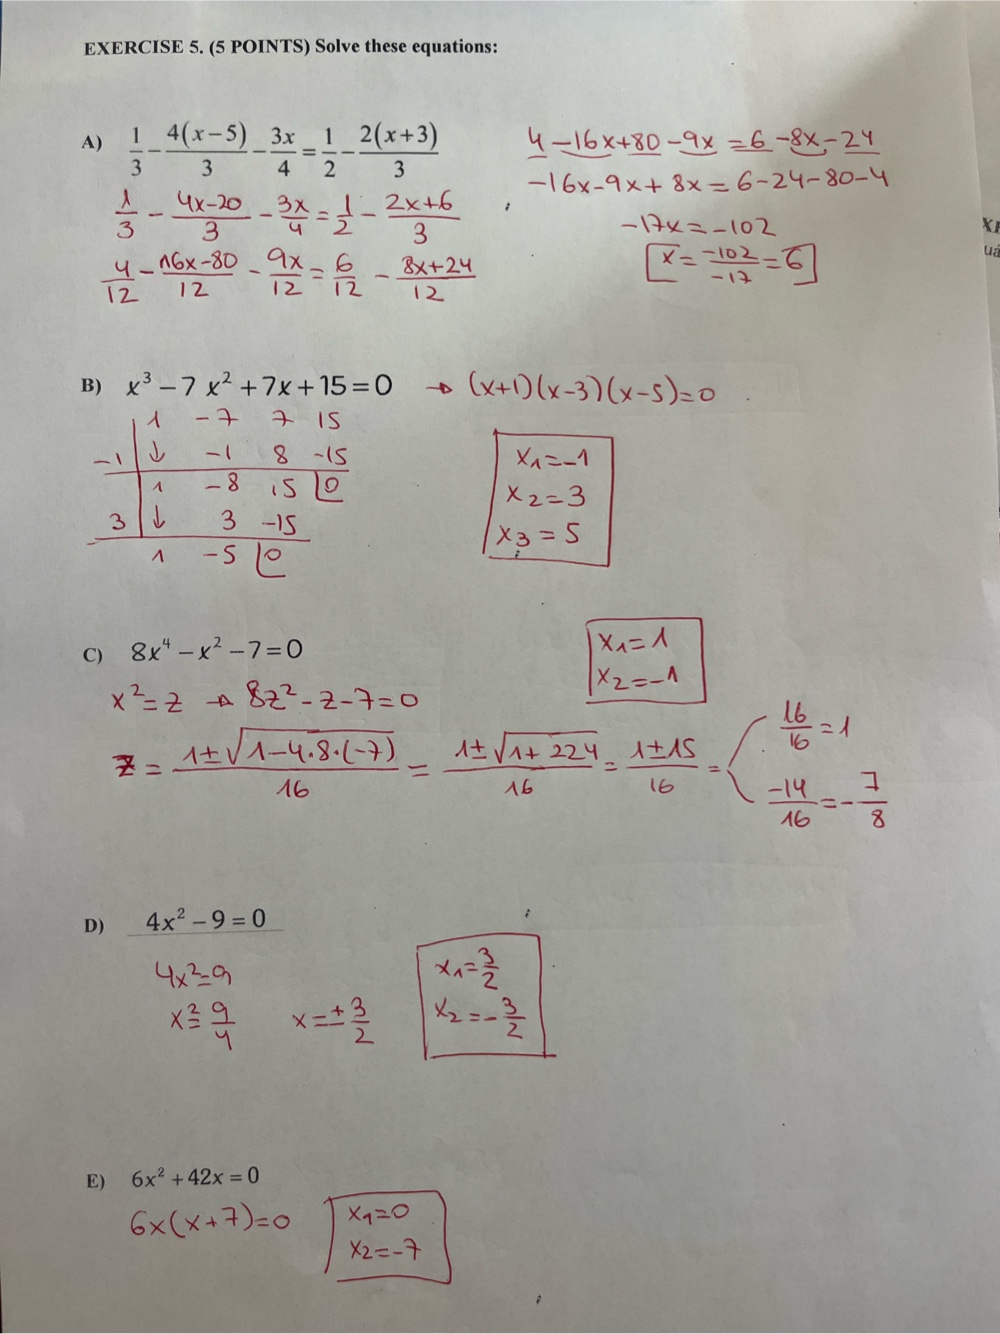 EXERCISE 5. (5 POINTS) Solve these equations:
A) 1/3 − 4(x−5)/3 − 3x/4 = 1/2 − 2(x+3)/3
1/3 − 4x−20/3 − 3x/4 = 1/2 − 2x+6/3
4/12 − 16x−80/12 − 9x/12 = 6/12 − 8x+24/12
4−16x+80−9x=6−8x−24
−16x−9x+8x=6−24−80−4
−17x=−102
x=−102/−17=6
B) x³−7x²+7x+15=0 → (x+1)(x−3)(x−5)=0
1 −7 7 15
−1 ↓ −1 8 −15
1 −8 15 0
3 ↓ 3 −15
1 −5 0
x₁=−1
x₂=3
x₃=5
C) 8x⁴−x²−7=0
x²=z → 8z²−z−7=0
z = 1±√1−4·8·(−7)/16 = 1±√1+224/16 = 1±15/16 =
16/16=1
−14/16=−7/8
x₁=1
x₂=−1
D) 4x²−9=0
4x²=9
x²=9/4 x=±3/2
x₁=3/2
x₂=−3/2
E) 6x²+42x=0
6x(x+7)=0
x₁=0
x₂=−7